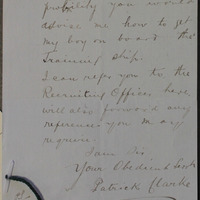 probably you would
advise me how to get
my boy on board the
Training Ship.
I can refer you to, the
Recruiting Officer here
will also forward any
references you m ay
require.
I am Sir.
Your Obedient Servt
Patrick Clarke